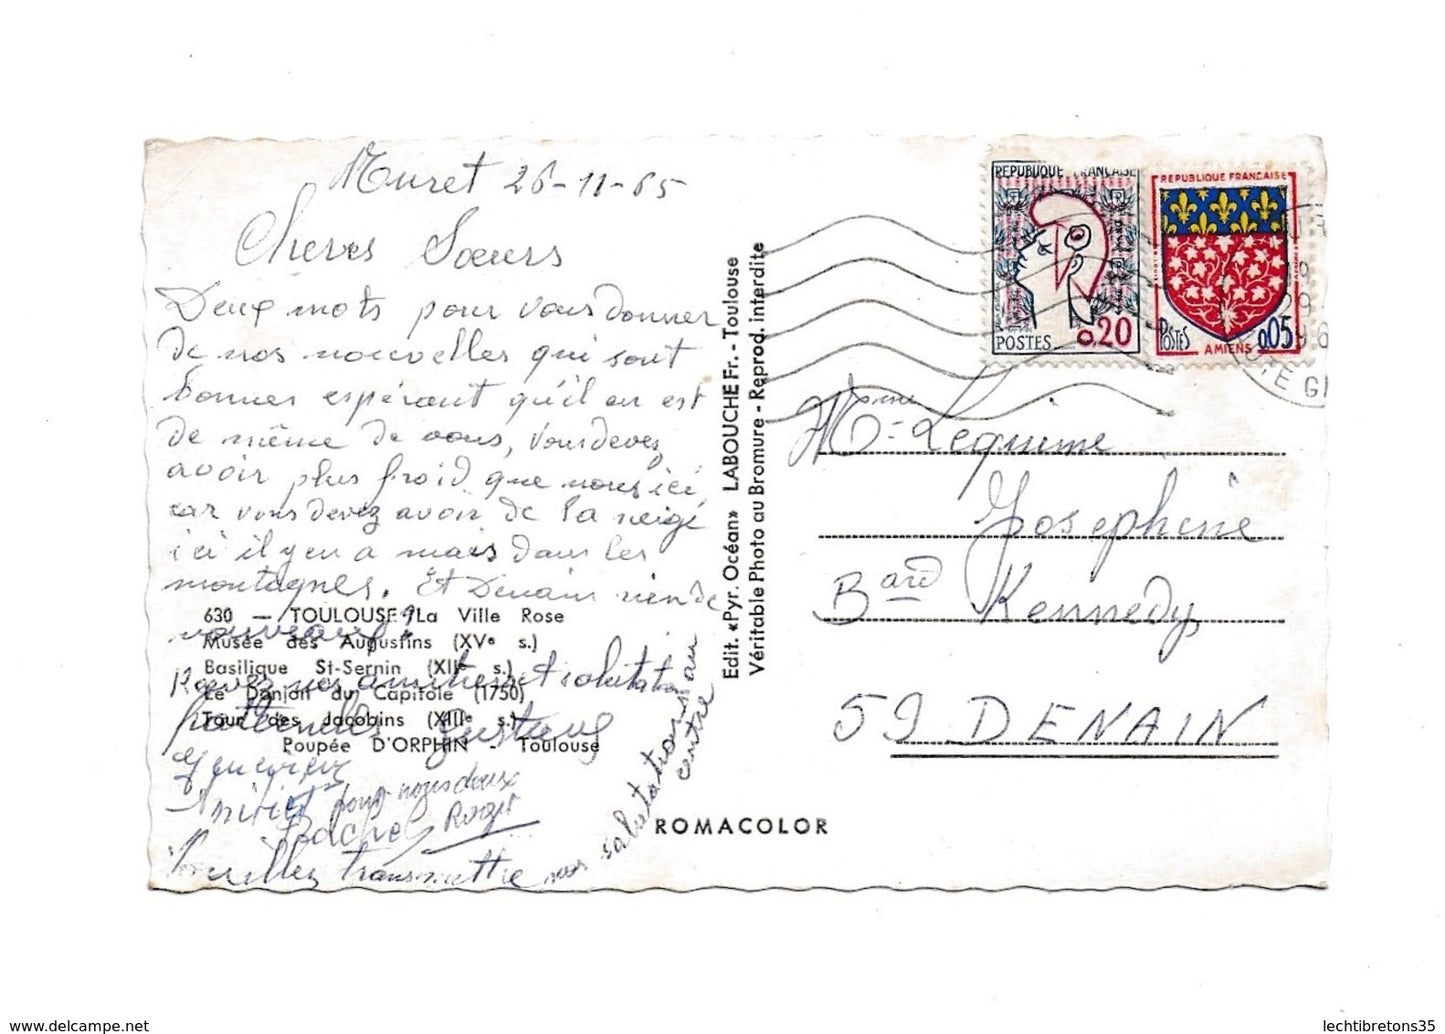 Muret 26-11-65
Chères Sœurs
Deux mots pour vous donner
de nos nouvelles qui sont
bonnes espérant qu'il en est
de même de vous, vous devez
avoir plus froid que nous ici,
car vous devez avoir de la neige
ici il y en a mais dans les
montagnes. Et Denain rien de
nouveau ?
Recevez nos amitiés et salutations
fraternelles Gustave
Geneviève
pour nous deux
Rachel Roger
Veuillez transmettre nos salutations au
centre
630 — TOULOUSE La Ville Rose
Musée des Augustins (XVe s.)
Basilique St-Sernin (XIIe s.)
Le Donjon du Capitole (1750)
Tour des Jacobins (XIIIe s.)
Poupée D'ORPHIN - Toulouse
Edit. «Pyr. Océan» LABOUCHE Fr. - Toulouse
Véritable Photo au Bromure - Reprod. interdite
ROMACOLOR
REPUBLIQUE FRANÇAISE
0,20
POSTES
REPUBLIQUE FRANÇAISE
POSTES 0,05
AMIENS
Mme Lequime
Josephine
Bard Kennedy
59 DENAIN
www.delcampe.net
lechtibretons35